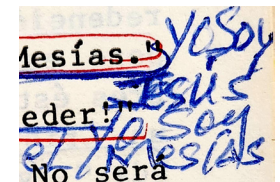 Mesías." Yo Soy
Jesús
eder!" Yo Soy
el Mesías
No será